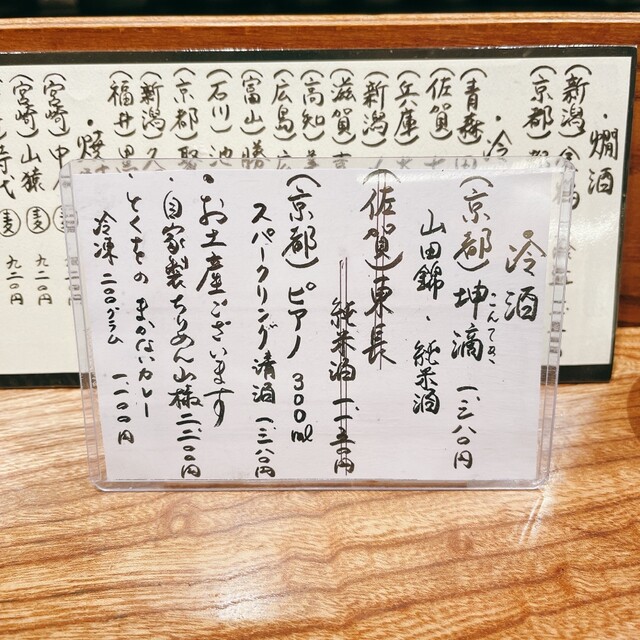 ・冷酒
(京都) 坤滴 一、三八〇円
こんてき
山田錦・純米酒
(佐賀) 東長
純米酒 一、一五〇円
(京都) ピアノ 300ml
スパークリング清酒 一、三八〇円
・お土産ございます
自家製ちりめん山椒 二、二〇〇円
・とくをの まかないカレー
冷凍 二〇〇グラム 一、一〇〇円
・燗酒
(新潟)
(京都)
・冷
(青森)
(佐賀)
(兵庫)
(新潟)
(滋賀)
(高知)
(広島)
(富山) 勝
(石川) 池
(京都) 聚
(新潟) 久
(福井) 黒
・焼
(宮崎) 中
麦 九二〇円
(宮崎) 山猿 麦 九二〇円